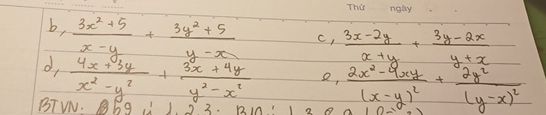 Thứ ngày
b, \frac{3x²+5}{x-y} + \frac{3y²+5}{y-x} c, \frac{3x-2y}{x+y} + \frac{3y-2x}{y+x}
d, \frac{4x+3y}{x²-y²} + \frac{3x+4y}{y²-x²} e, \frac{2x²-4xy}{(x-y)²} + \frac{2y²}{(y-x)²}
BTVN: